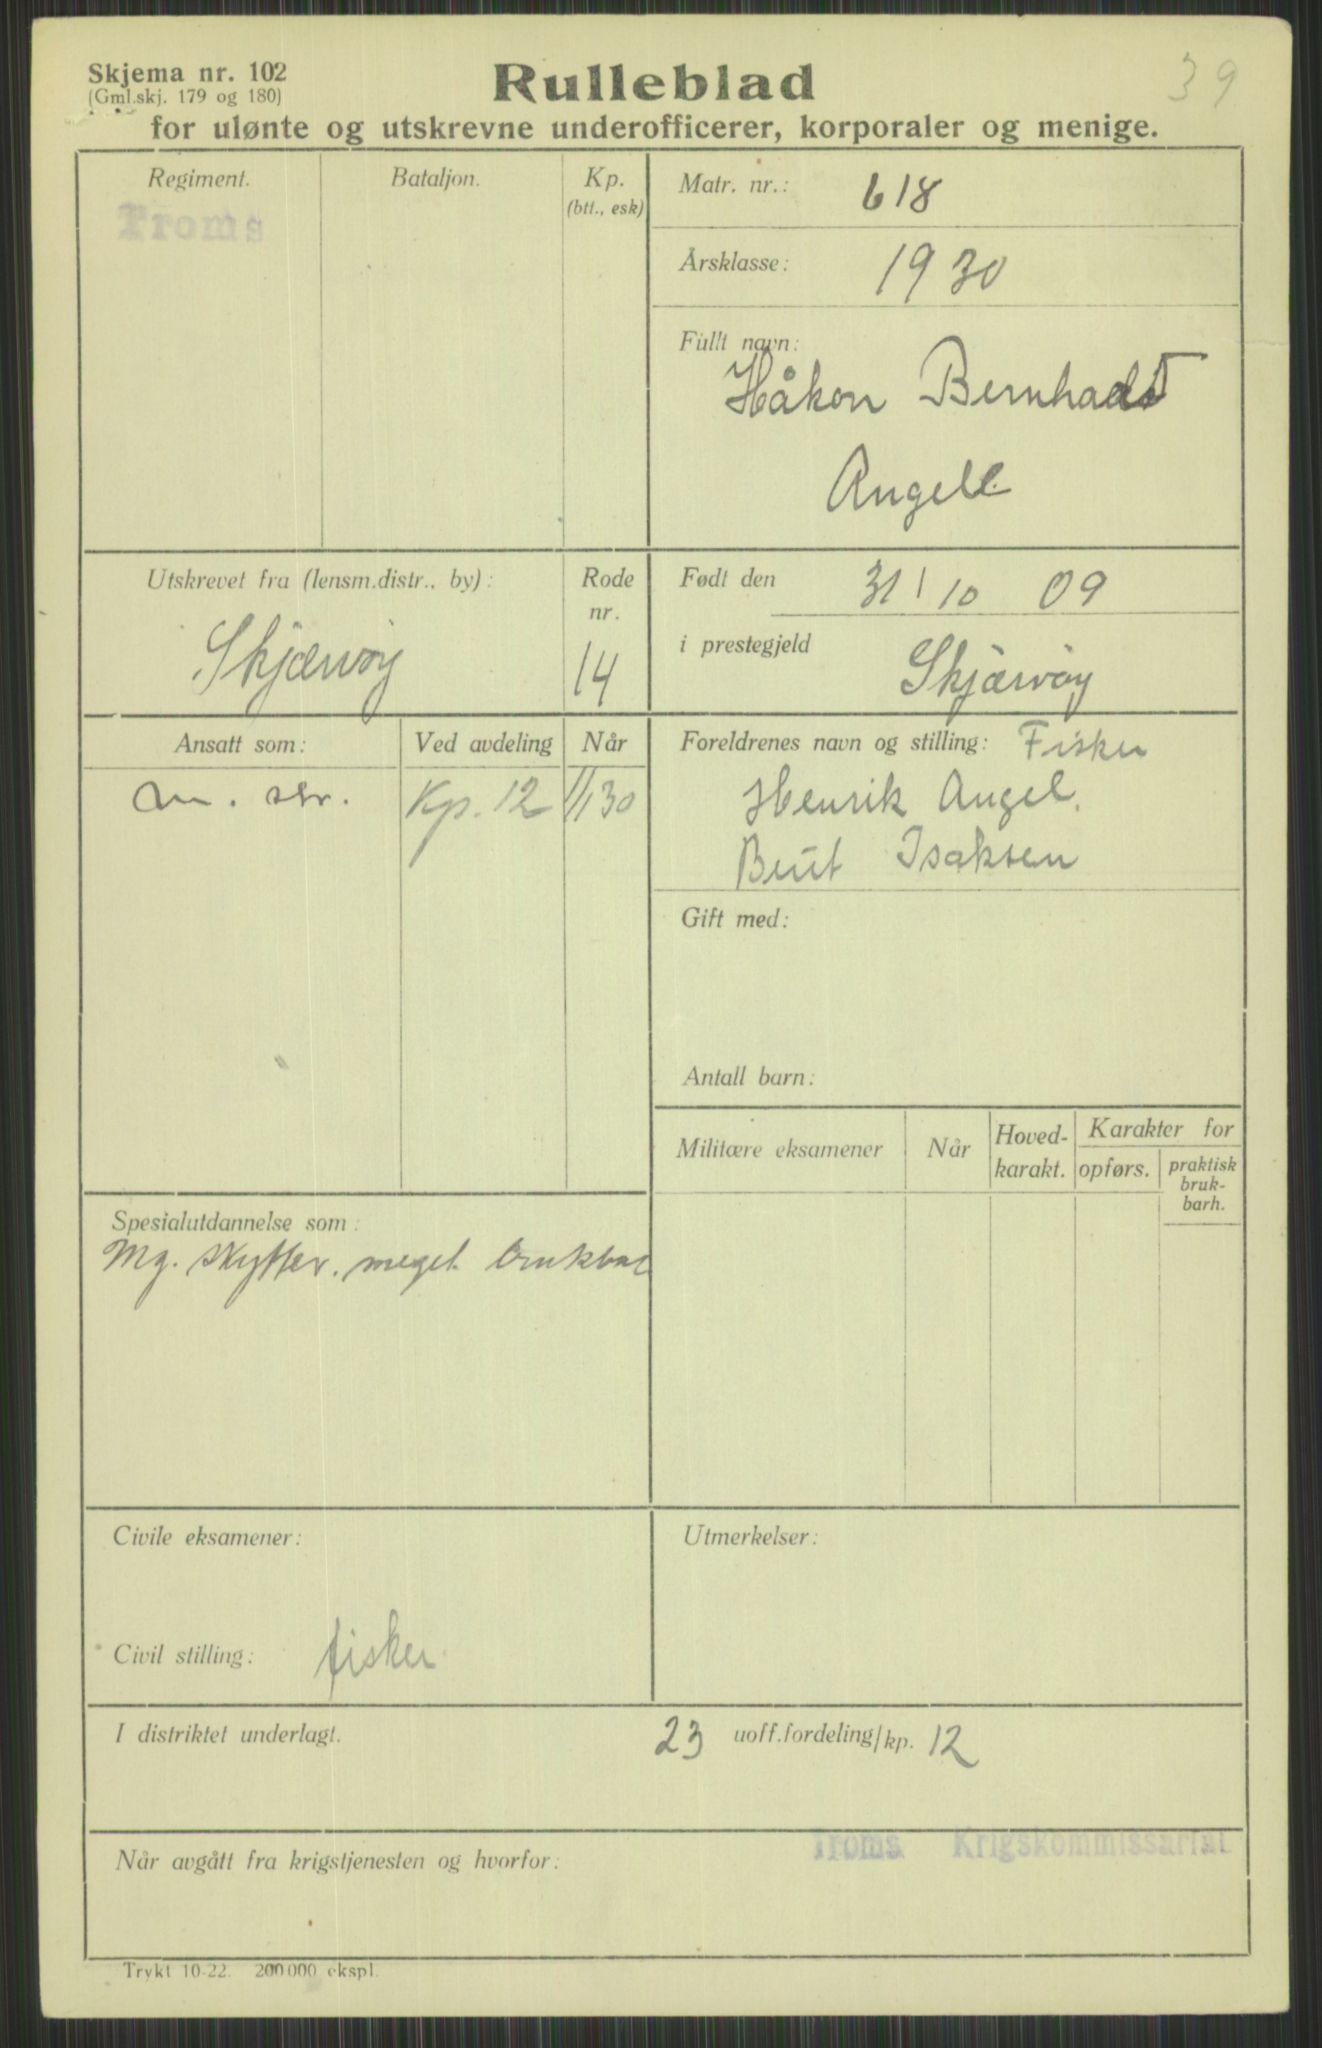 39
Skjema nr. 102
(Gml.skj. 179 og 180)
Rulleblad
for ulønte og utskrevne underofficerer, korporaler og menige.
Regiment.
Troms
Bataljon.
Kp.
(btt., esk)
Matr. nr.: 618
Årsklasse: 1930
Fullt navn:
Håkon Bernhadt
Angell
Utskrevet fra (lensm.distr., by):
Skjærvøy
Rode
nr.
14
Født den 31/10 09
i prestegjeld Skjærvøy
Ansatt som:
Ved avdeling
Når
Kp. 12
1/1 30
Foreldrenes navn og stilling: Fisker
Henrik Angel.
Isaksen
Gift med:
Antall barn:
Militære eksamener
Når
Hoved-
karakt.
Karakter for
opførs.
praktisk
bruk-
barh.
Spesialutdannelse som:
Mg. skytter. meget brukbar
Civile eksamener:
Civil stilling: fisker
Utmerkelser:
I distriktet underlagt.
23 uoff.fordeling/kp. 12
Når avgått fra krigstjenesten og hvorfor:
Troms Krigskommissariat
Trykt 10-22. 200 000 ekspl.